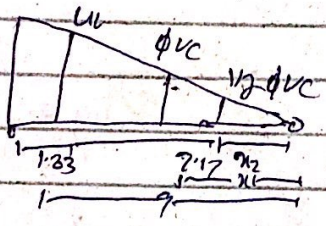 UL
φVC
1/2 φVC
1.33
2.17
x2
x
9